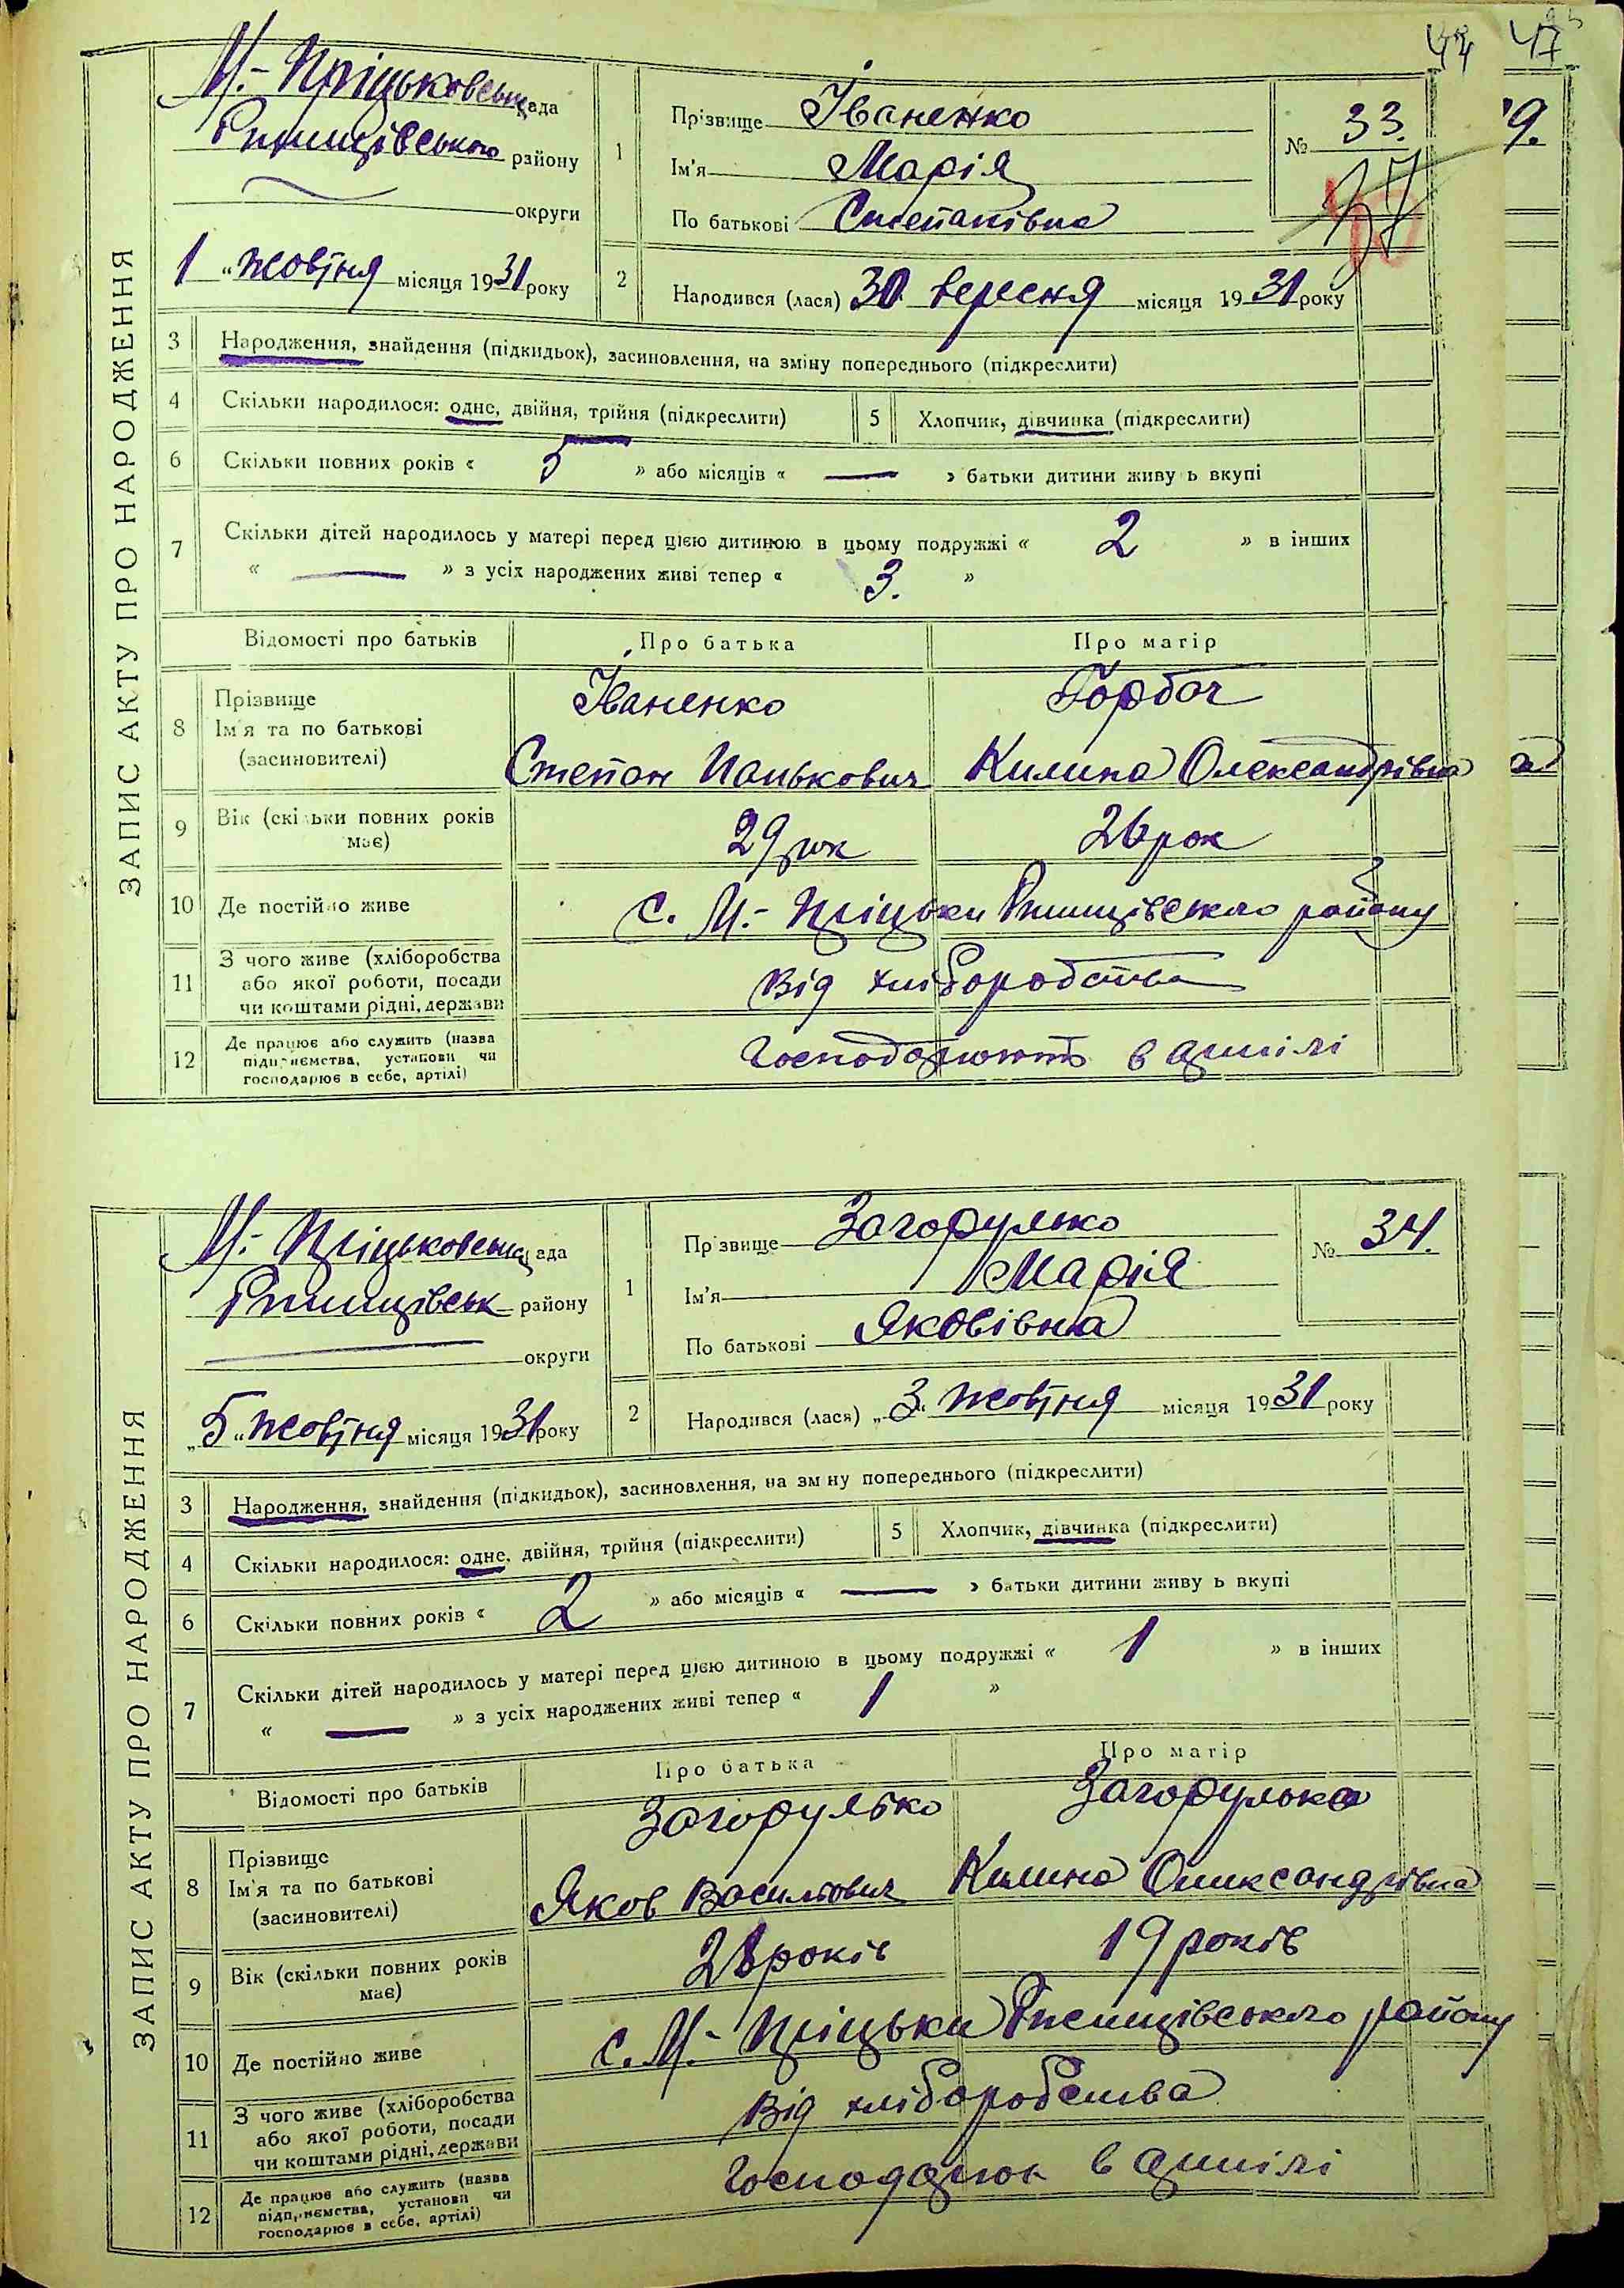 44 47
ЗАПИС АКТУ ПРО НАРОДЖЕННЯ
М.-Пріцьковська рада
Ржищівського району
округи
1 „ жовтня місяця 1931 року
1
Прізвище Іваненко
Ім'я Марія
По батькові Степанівна
№ 33.
9.
2
Народився (лася) 30 вересня місяця 1931 року
3 Народження, знайдення (підкидьок), засиновлення, на зміну попереднього (підкреслити)
4 Скільки народилося: одне, двійня, трійня (підкреслити) 5 Хлопчик, дівчинка (підкреслити)
6 Скільки повних років « 5 » або місяців « — » батьки дитини живу ь вкупі
7 Скільки дітей народилось у матері перед цією дитиною в цьому подружжі « 2 » в інших
« — » з усіх народжених живі тепер « 3. »
Відомості про батьків Про батька Про матір
8 Прізвище Іваненко Горбач
Ім'я та по батькові
(засиновителі) Степан Панькович Килина Олександрівна
9 Вік (скільки повних років має) 29 рок 26 рок
10 Де постійно живе с. М.-Пріцьки Ржищівського району
11 З чого живе (хліборобства
або якої роботи, посади
чи коштами рідні, держави Від хліборобства
12 Де працює або служить (назва
підприємства, установи чи
господарює в себе, артілі) Господарюють в артілі
ЗАПИС АКТУ ПРО НАРОДЖЕННЯ
М.-Пріцьковська рада
Ржищівськ району
округи
„5“ жовтня місяця 1931 року
1
Пр звище Загорулько
Ім'я Марія
По батькові Яковівна
№ 34.
2
Народився (лася) „3“ жовтня місяця 1931 року
3 Народження, знайдення (підкидьок), засиновлення, на зм ну попереднього (підкреслити)
4 Скільки народилося: одне, двійня, трійня (підкреслити) 5 Хлопчик, дівчинка (підкреслити)
6 Скільки повних років « 2 » або місяців « — » батьки дитини живу ь вкупі
7 Скільки дітей народилось у матері перед цією дитиною в цьому подружжі « 1 » в інших
« — » з усіх народжених живі тепер « 1 »
Відомості про батьків Про батька Про матір
8 Прізвище Загорулько Загорулько
Ім'я та по батькові
(засиновителі) Яков Васильович Килина Олександрівна
9 Вік (скільки повних років має) 28 років 19 років
10 Де постійно живе с. М.-Пріцьки Ржищівського району
11 З чого живе (хліборобства
або якої роботи, посади
чи коштами рідні, держави Від хліборобства
12 Де працює або служить (назва
підприємства, установи чи
господарює в себе, артілі) в артілі